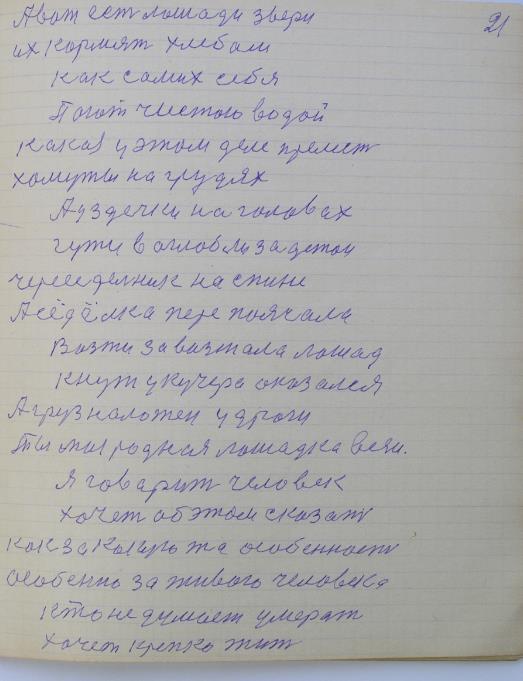 21
А вот ест лошади звери
их кормят хлебом
как самих себя
Поют чистою водой
какая у этом деле прелест
хомуты на грудях
А уздечки на головах
гужи в оглобли
череседелник на спине
А сёдёлка перепоячала
Возжи завозжала лошад
Кнут у кучера оказался
А груз наложен у дроги
Ты моя родная лошадка вези.
Я говарит человек
хочет об этом сказат
как за какую та особенност
особенно за живого человека
Кто не думает умерат
хочет крепко жит